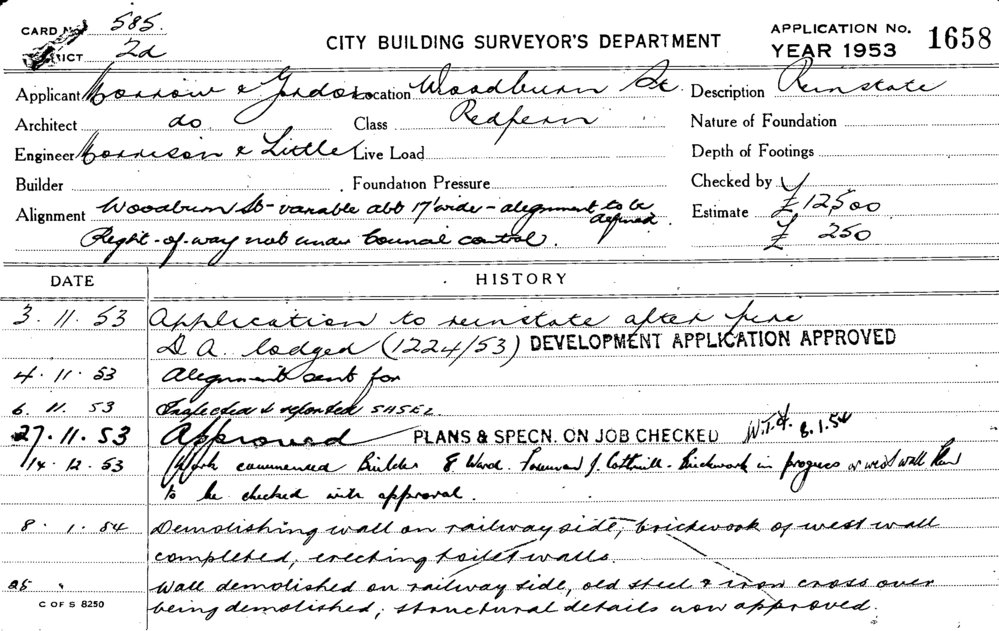 CARD No. 585.
DISTRICT 2d
CITY BUILDING SURVEYOR'S DEPARTMENT
APPLICATION No. 1658
YEAR 1953
Applicant Morrow & Gordon Location Woodburn St. Description Reinstate
Architect do. Class Redfern Nature of Foundation
Engineer Morrison & Little Live Load Depth of Footings
Builder Foundation Pressure Checked by
Alignment Woodburn St - variable abt 17' wide - alignment to be defined. Estimate £ 12500
Right-of-way not under Council control. £ 250
DATE HISTORY
3. 11. 53 Application to reinstate after fire
D A. lodged (1224/53) DEVELOPMENT APPLICATION APPROVED
4. 11. 53 Alignment sent for
6. 11. 53 Inspected & reported
27. 11. 53 Approved PLANS & SPECN. ON JOB CHECKED 8.1.54
14. 12. 53 Work commenced Builder E Ward. Foreman J. Brickwork in progress w west wall Plan
to be checked with approval.
8. 1. 54 Demolishing wall on railway side, brickwook of west wall
completed, erecting toilet walls.
25 " Wall demolished on railway side, old steel & iron cross over
being demolished, structural details now approved.
C OF S 8250